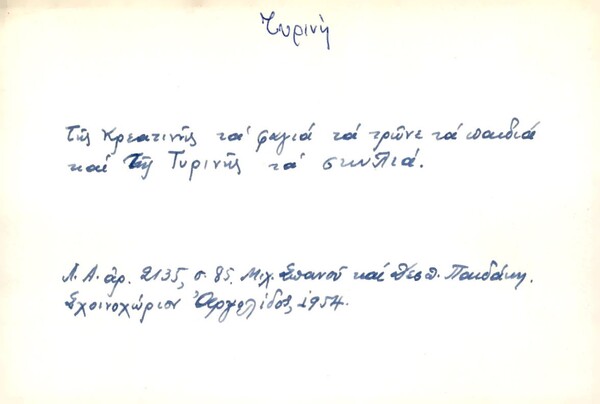 Τυρινή
Τῆς Κρεατινῆς τὰ φαγιά τὰ τρῶνε τὰ παιδιά
καὶ τῆς Τυρινῆς τὰ σκυλιά.
Λ. Α. ἀρ. 2135, σ. 85. Μιχ. Σπανοῦ καὶ Δεσπ. Παιδάκη.
Σχοινοχώριον Ἀργολίδος, 1954.